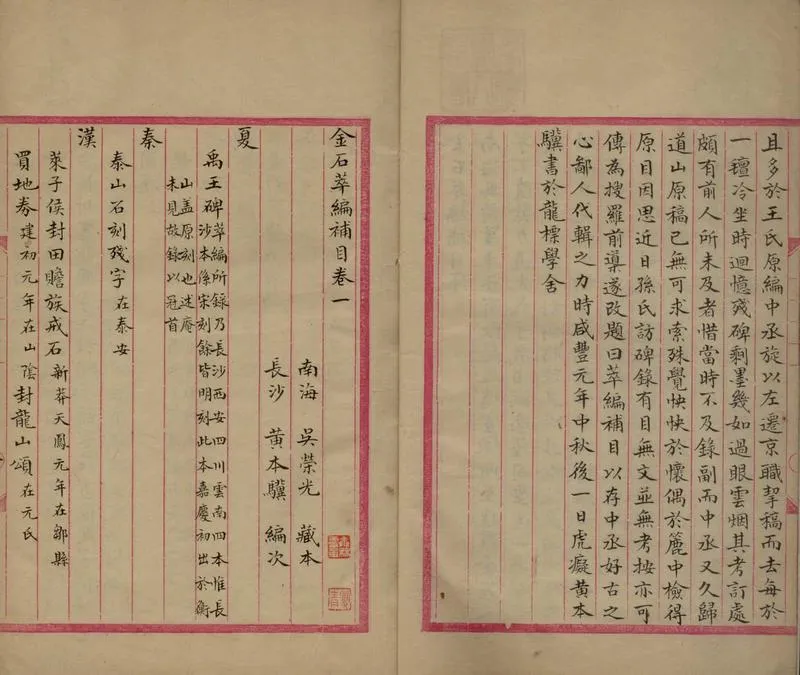 且多於王氏原編中丞旋以左遷京職挈稿而去每於
一氊冷坐時迴憶殘碑剩墨幾如過眼雲烟其考訂處
頗有前人所未及者惜當時不及錄副而中丞又久歸
道山原稿已無可求索殊覺怏怏於懷偶於簏中檢得
原目因思近日孫氏訪碑錄有目無文並無考按亦可
傳為搜羅前導遂改題曰萃編補目以存中丞好古之
心鄙人代輯之力時咸豐元年中秋後一日虎癡黃本
驥書於龍標學舍
金石萃編補目卷一
南海 吳榮光 藏本
長沙 黃本驥 編次
夏
禹王碑
萃編所錄乃長沙西安四川雲南四本惟長
沙本係宋刻餘皆明刻此本嘉慶初出於衡
山盖原刻也述庵
未見故錄以冠首
秦
泰山石刻殘字在泰安
漢
萊子侯封田贍族戒石新莽天鳳元年在鄒縣
買地券建初元年在山陰封龍山頌在元氏